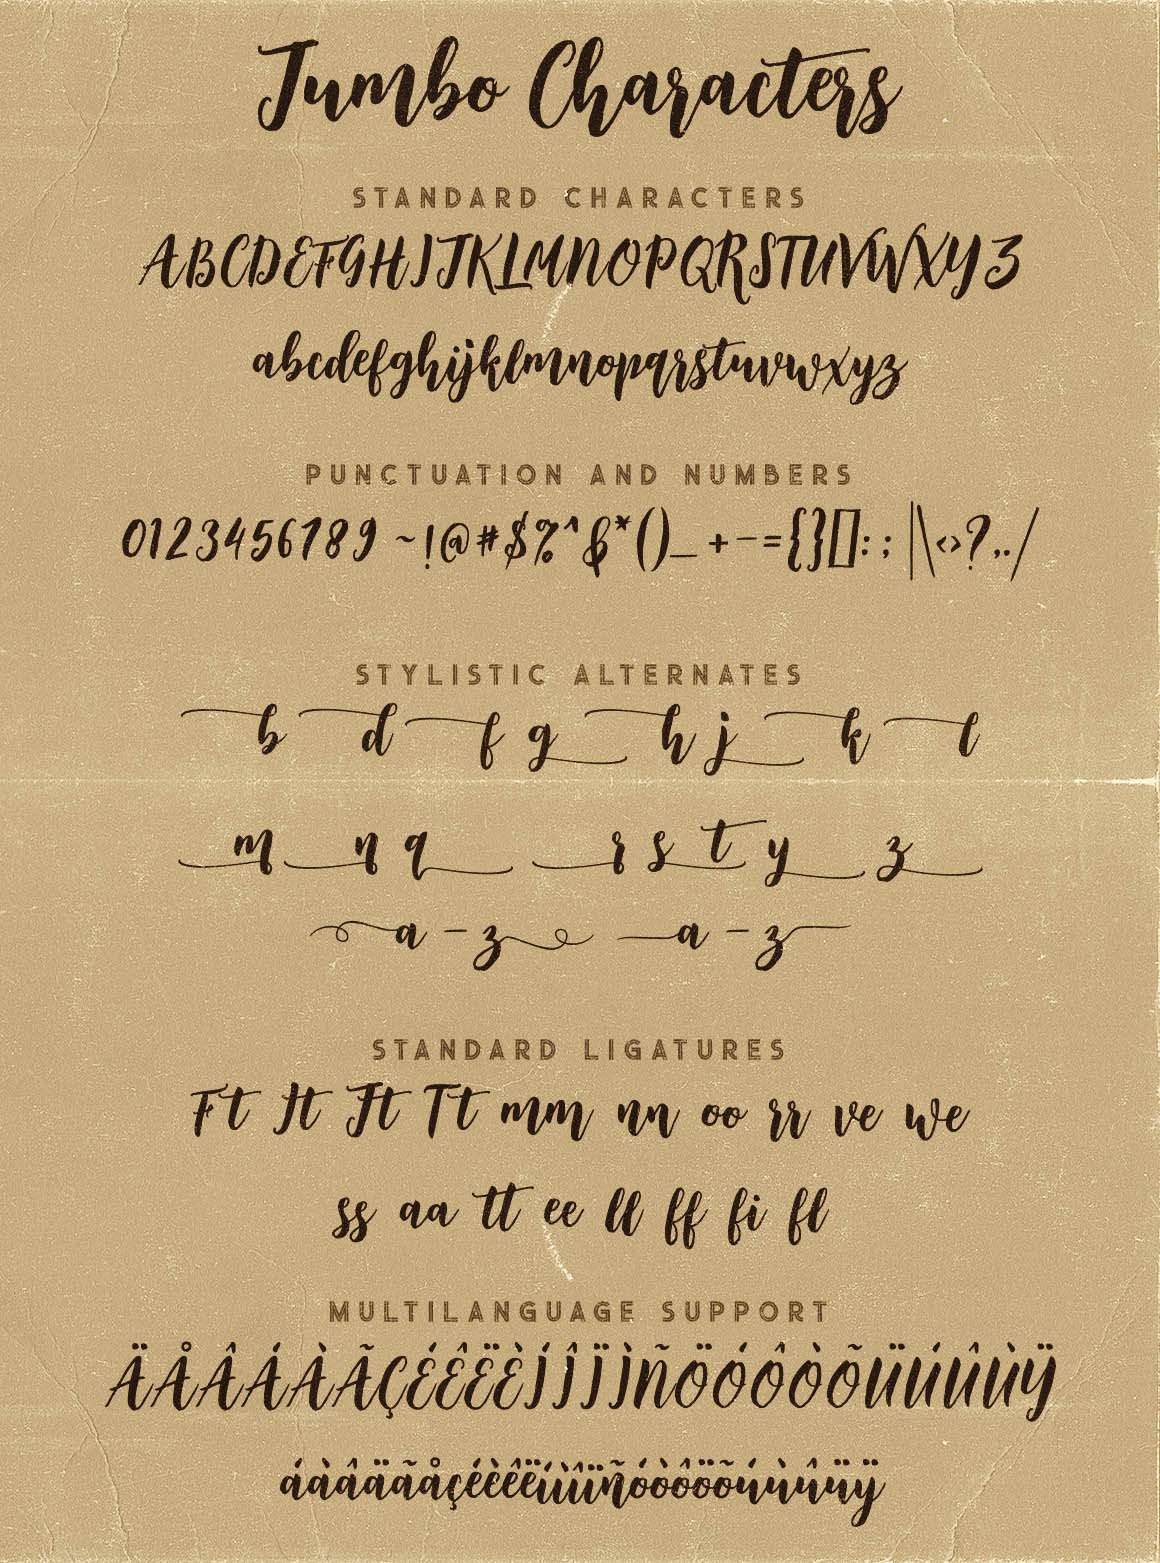 Jumbo Characters
STANDARD CHARACTERS
ABCDEFGHIJKLMNOPQRSTUVWXYZ
abcdefghijklmnopqrstuvwxyz
PUNCTUATION AND NUMBERS
0123456789 ~!@#$%^&*()_ +-={}[]:; |\<>?,./
STYLISTIC ALTERNATES
b d f g h j k l
m n q r s t y z
a - z a - z
STANDARD LIGATURES
Ft It Jt Tt mm nn oo rr ve we
ss aa tt ee ll ff fi fl
MULTILANGUAGE SUPPORT
ÄÅÂÁÀÃÇÉÊËÈÍÎÏÌÑÖÓÔÒÕÜÚÛÙŸ
áàâäãåçéèêëíìîïñóòôöõúùûüÿ